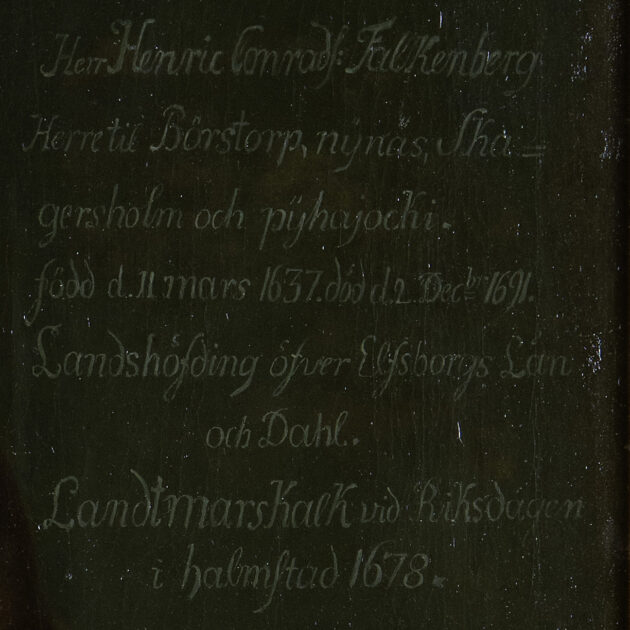 Herr Henric Conradſ: Falkenberg
Herre til Börstorp, nÿnäs, Ska=
gersholm och pÿhajocki.
född d. 11 mars 1637. död d. 2 Decbr 1691.
Landshöfding öfver Elfsborgs Län
och Dahl.
Landtmarskalk vid Riksdagen
i halmſtad 1678.